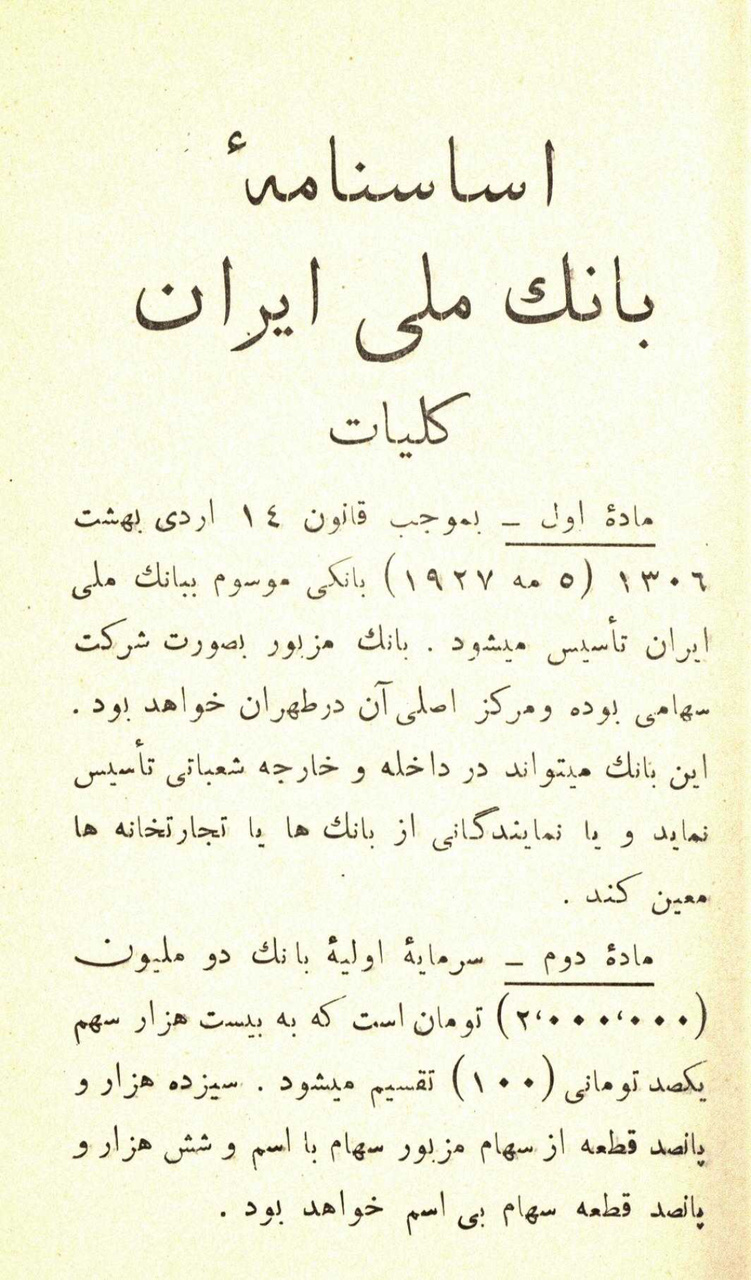 اساسنامهٔ
بانك ملی ایران
کلیات
مادهٔ اول ــ بموجب قانون ١٤ اردی بهشت
١٣٠٦ (٥ مه ١٩٢٧) بانکی موسوم ببانك ملی
ایران تأسیس میشود . بانك مزبور بصورت شرکت
سهامی بوده ومرکز اصلی آن درطهران خواهد بود .
این بانك میتواند در داخله و خارجه شعباتی تأسیس
نماید و یا نمایندگانی از بانك ها یا تجارتخانه ها
معین کند .
مادهٔ دوم ــ سرمایهٔ اولیهٔ بانك دو ملیون
(٢٬٠٠٠٬٠٠٠) تومان است که به بیست هزار سهم
یکصد تومانی (١٠٠) تقسیم میشود . سیزده هزار و
پانصد قطعه از سهام مزبور سهام با اسم و شش هزار و
پانصد قطعه سهام بی اسم خواهد بود .